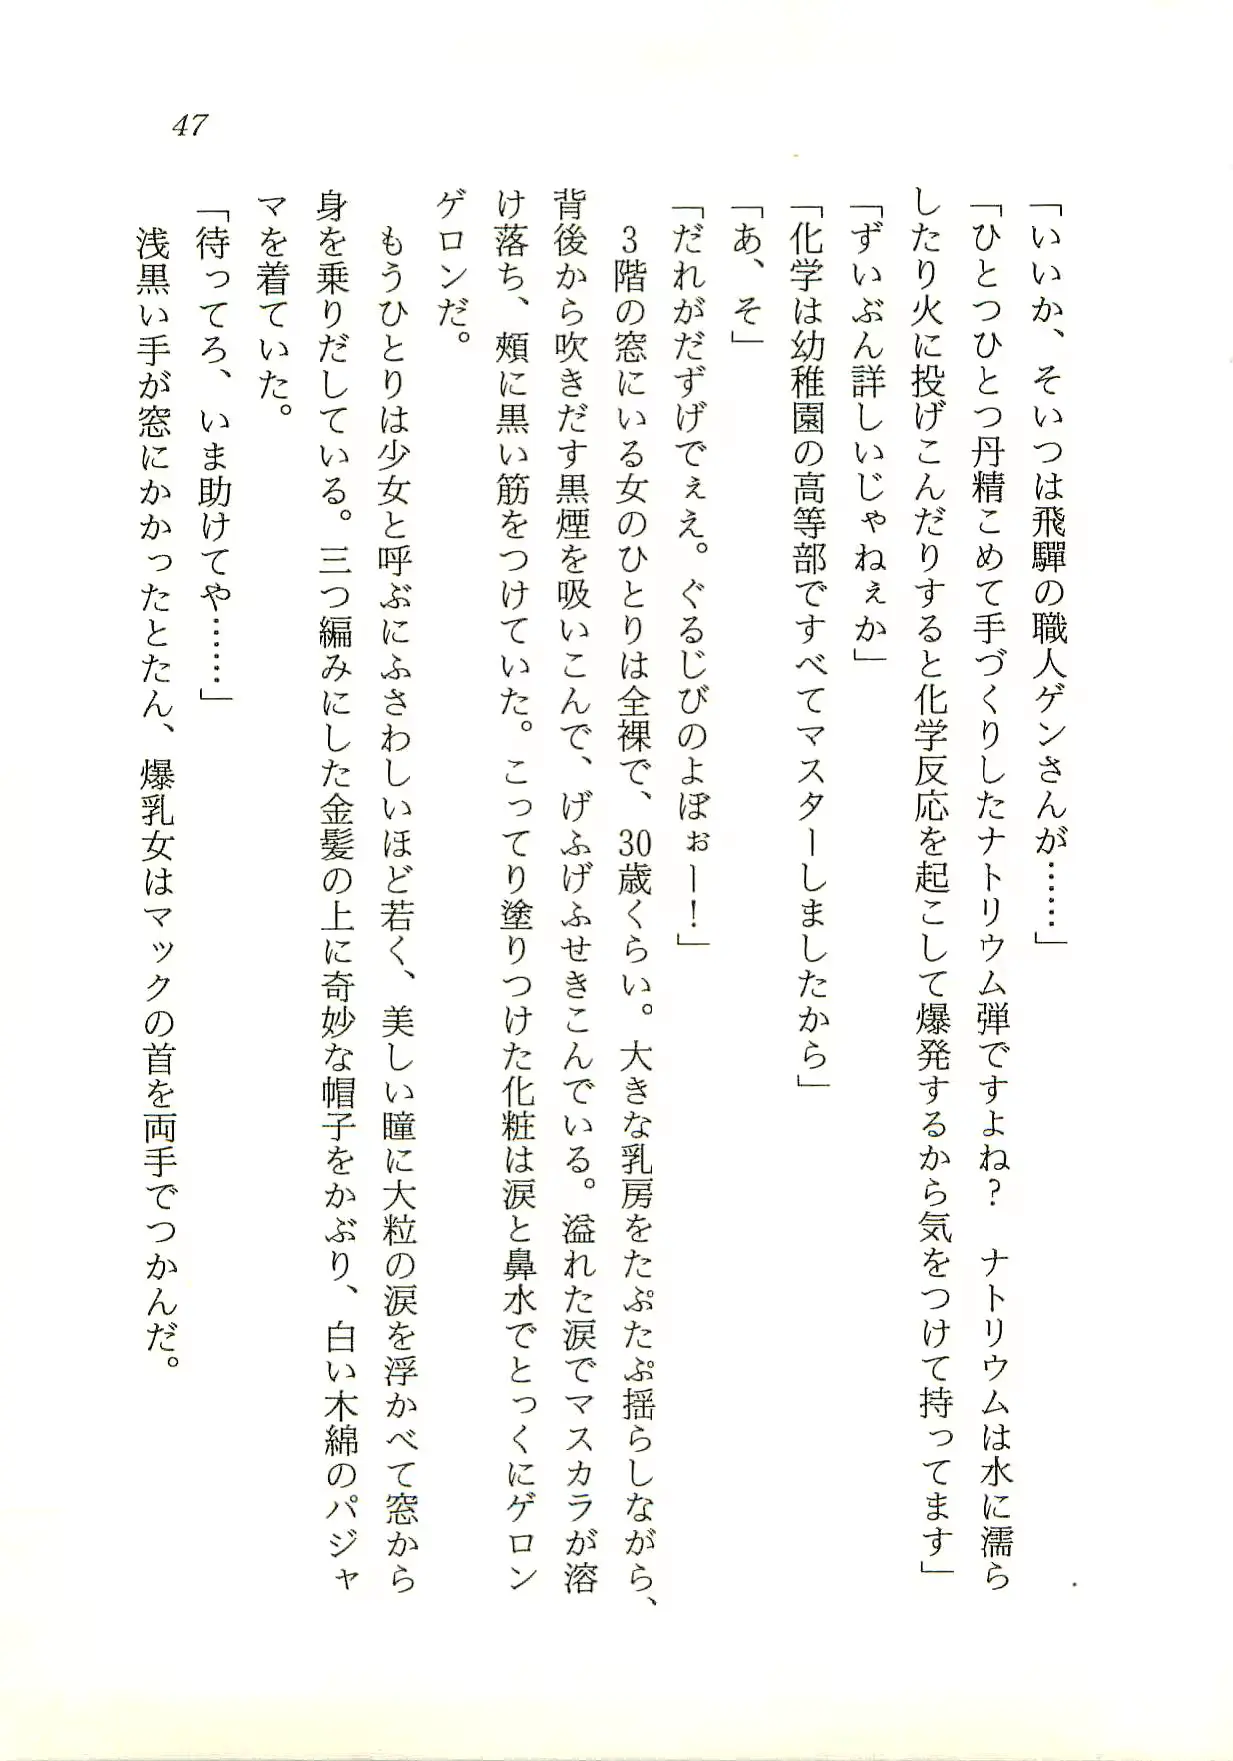 47
「いいか、そいつは飛驒の職人ゲンさんが……」
「ひとつひとつ丹精こめて手づくりしたナトリウム弾ですよね？　ナトリウムは水に濡ら
したり火に投げこんだりすると化学反応を起こして爆発するから気をつけて持ってます」
「ずいぶん詳しいじゃねぇか」
「化学は幼稚園の高等部ですべてマスターしましたから」
「あ、そ」
「だれがだずげでぇえ。ぐるじびのよぼぉー！」
　3階の窓にいる女のひとりは全裸で、30歳くらい。大きな乳房をたぷたぷ揺らしながら、
背後から吹きだす黒煙を吸いこんで、げふげふせきこんでいる。溢れた涙でマスカラが溶
け落ち、頰に黒い筋をつけていた。こってり塗りつけた化粧は涙と鼻水でとっくにゲロン
ゲロンだ。
　もうひとりは少女と呼ぶにふさわしいほど若く、美しい瞳に大粒の涙を浮かべて窓から
身を乗りだしている。三つ編みにした金髪の上に奇妙な帽子をかぶり、白い木綿のパジャ
マを着ていた。
「待ってろ、いま助けてや……」
　浅黒い手が窓にかかったとたん、爆乳女はマックの首を両手でつかんだ。